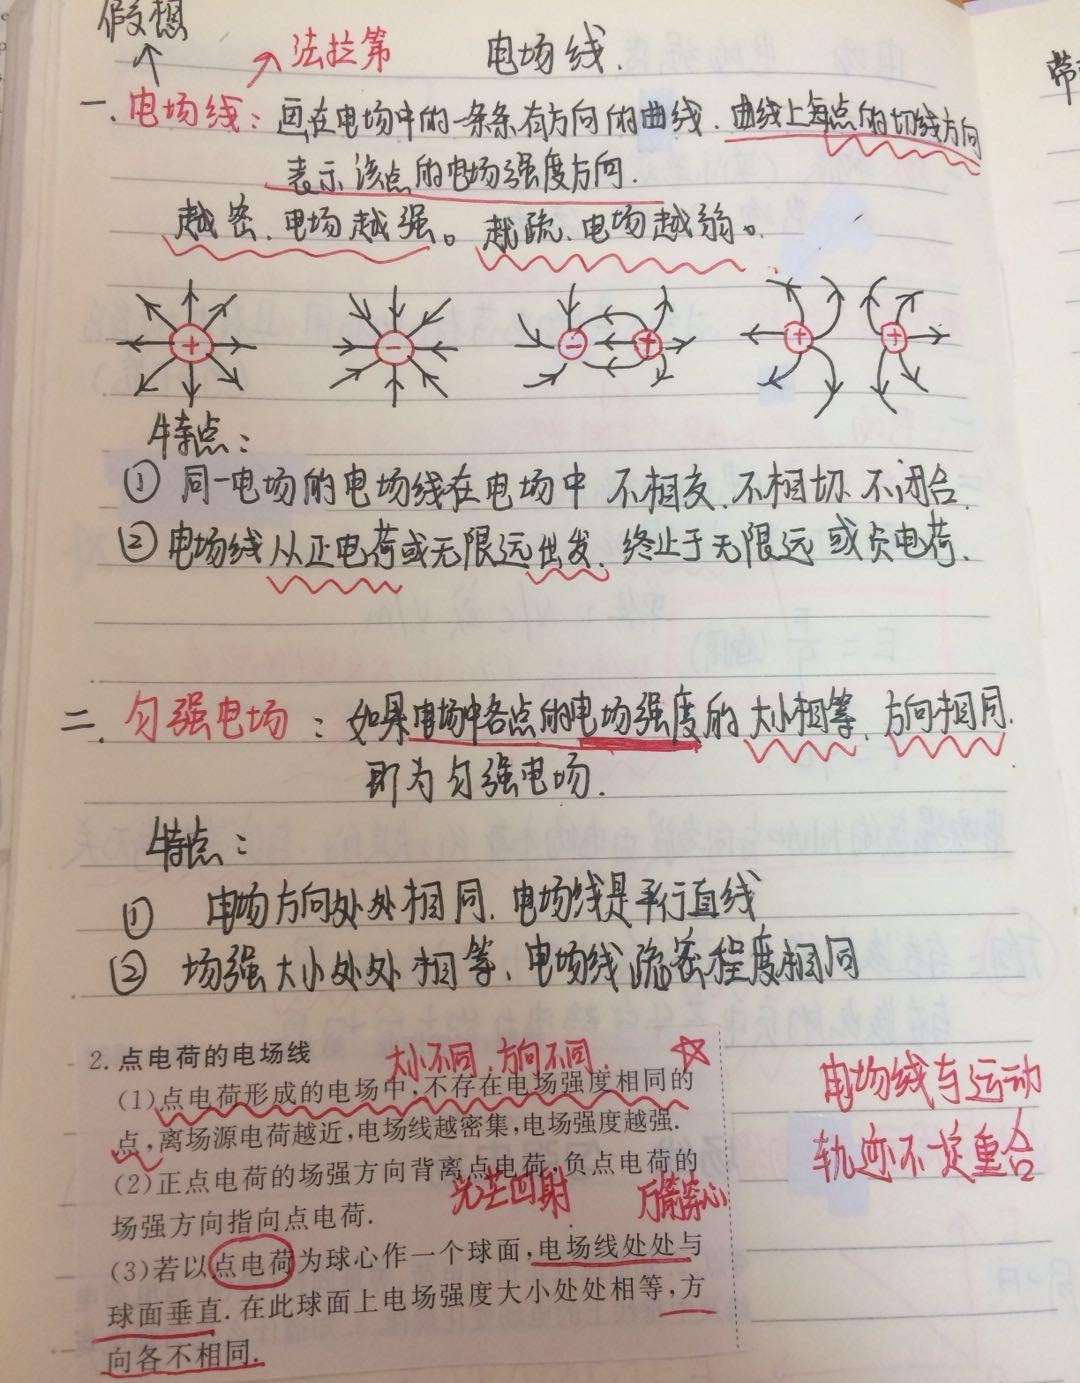 假想
法拉第 电场线.
一. 电场线: 画在电场中的一条条有方向的曲线. 曲线上每点的切线方向
表示该点的电场强度方向.
越密、电场越强。越疏、电场越弱。
+ - - + + +
特点:
① 同一电场的电场线在电场中 不相交. 不相切. 不闭合.
② 电场线从正电荷或无限远出发. 终止于无限远或负电荷.
二. 匀强电场: 如果电场中各点的电场强度的大小相等. 方向相同.
即为匀强电场.
特点:
① 电场方向处处相同. 电场线是平行直线
② 场强大小处处相等、电场线疏密程度相同
2. 点电荷的电场线
大小不同. 方向不同.
(1)点电荷形成的电场中,不存在电场强度相同的
点,离场源电荷越近,电场线越密集,电场强度越强.
(2)正点电荷的场强方向背离点电荷,负点电荷的
光芒四射 万箭穿心
场强方向指向点电荷.
(3)若以点电荷为球心作一个球面,电场线处处与
球面垂直.在此球面上电场强度大小处处相等,方
向各不相同.
电场线与运动
轨迹不一定重合
带